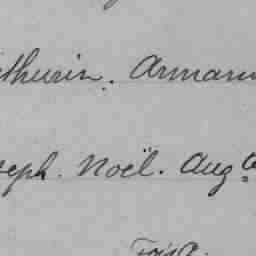 thurin. Arman
seph. Noël. Aug